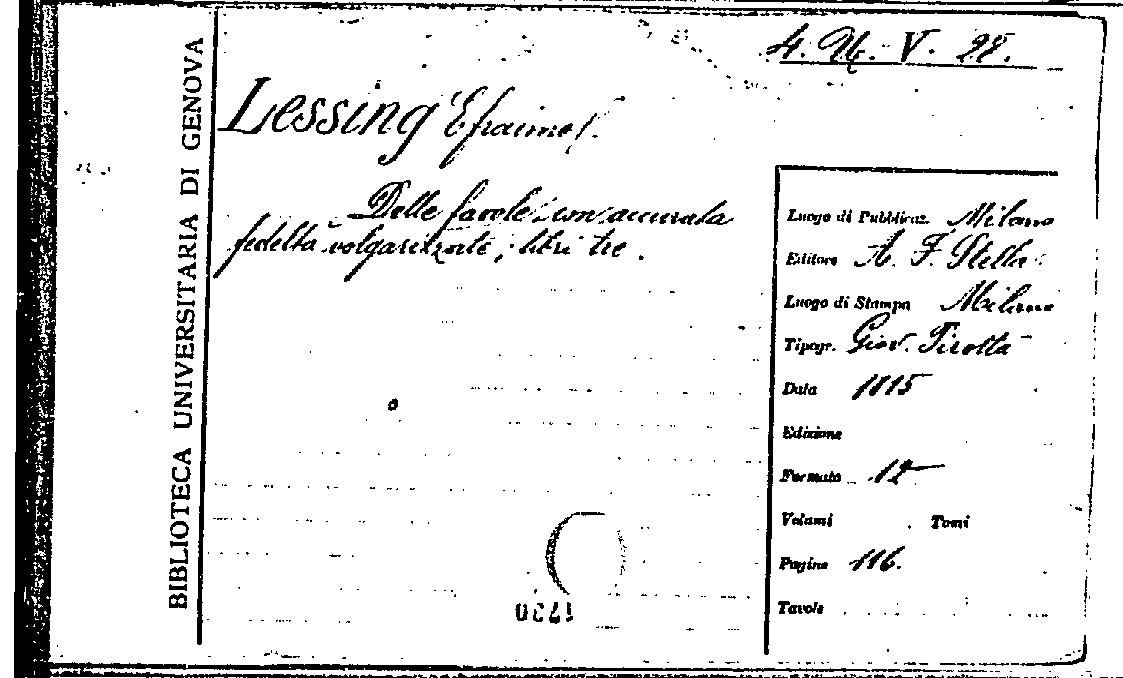 BIBLIOTECA UNIVERSITARIA DI GENOVA
4. V. 28.
Lessing Efraimo.
Delle favole con accurata
fedeltà volgarizzate, libri tre.
Luogo di Pubblicaz. Milano
Editore A. F. Stella
Luogo di Stampa Milano
Tipogr. Giov. Pirotta
Data 1815
Edizione
Formato 12
Volumi Tomi
Pagine 116.
Tavole